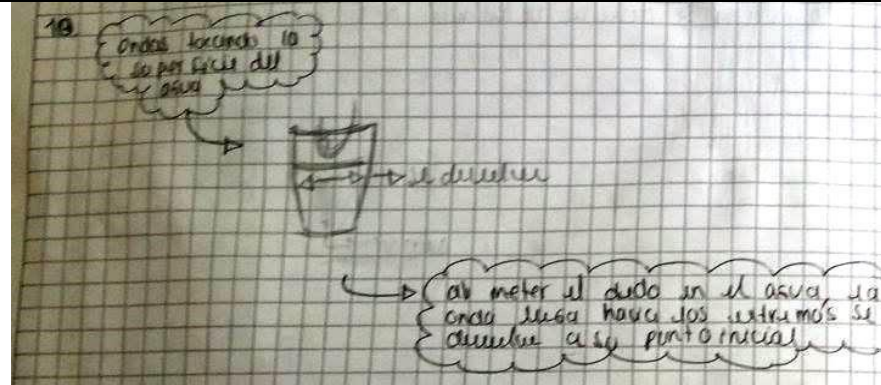 10
ondas tocando la
superficie del
agua
se devuelve
al meter el dedo en el agua, la
onda llega hacia los extremos se
devuelve a su punto inicial